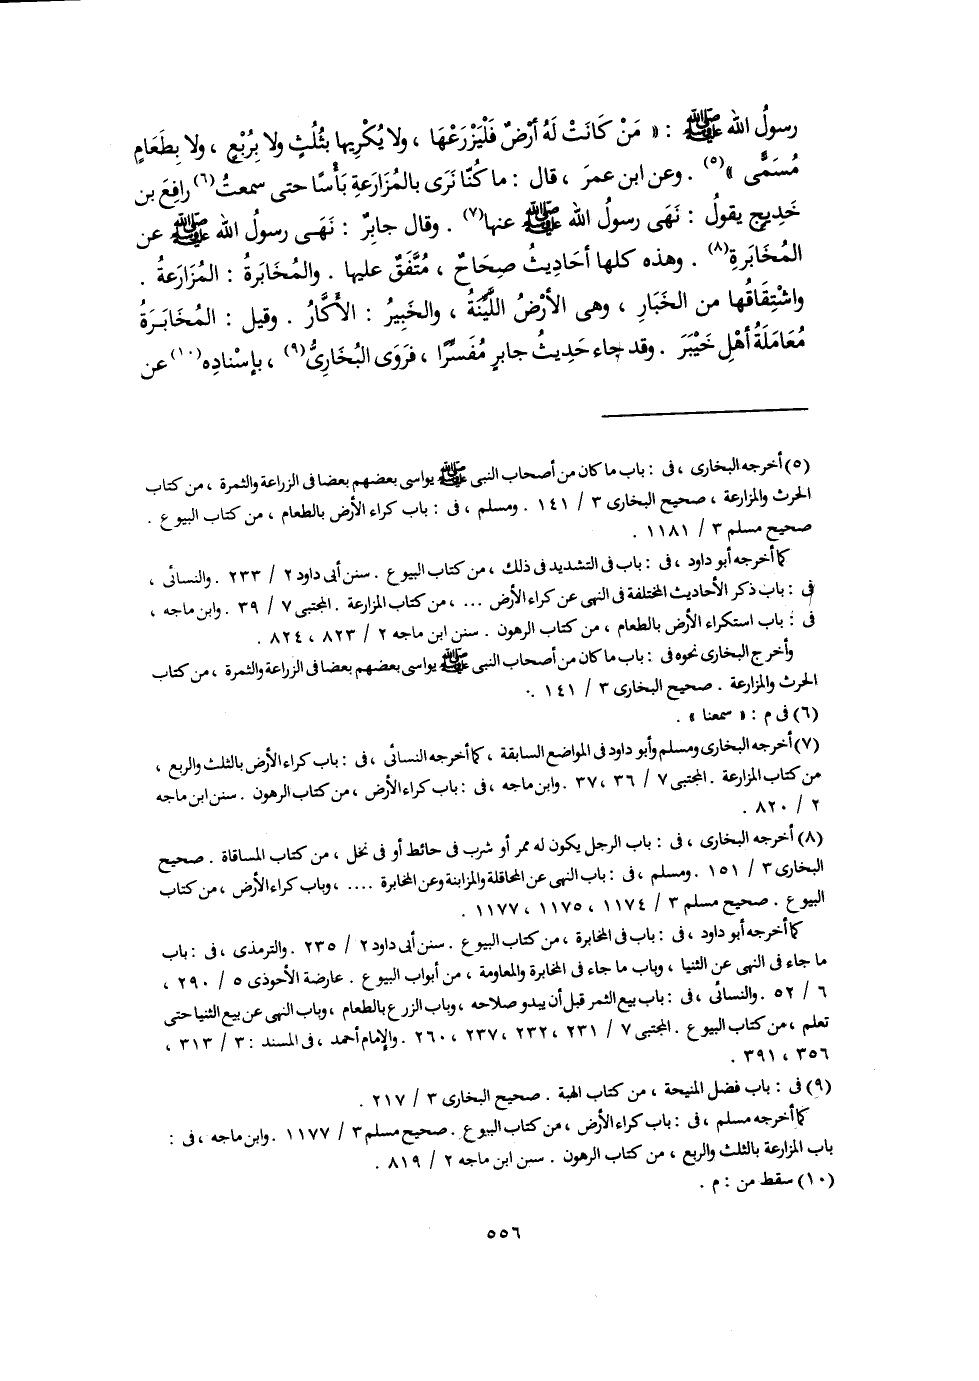 رسولُ الله ﷺ : « مَنْ كَانَتْ لَهُ أرْضٌ فَلْيَزْرَعْهَا ، ولا يُكْرِيها بِثُلُثٍ ولا بِرُبْعٍ ، ولا بِطَعَامٍ
مُسَمًّى »(٥) . وعن ابن عمرَ ، قال : ما كُنّا نَرَى بالمُزَارَعةِ بَأْسًا حتى سمعتُ(٦) رافِعَ بن
خَدِيجٍ يقولُ : نَهَى رسولُ الله ﷺ عنها(٧) . وقال جابِرٌ : نَهَى رسولُ الله ﷺ عن
المُخَابَرةِ(٨) . وهذه كلها أحَادِيثُ صِحَاحٌ ، مُتَّفَقٌ عليها . والمُخَابَرةُ : المُزَارَعةُ .
واشْتِقَاقُها من الخَبَارِ ، وهى الأرْضُ اللَّيِّنةُ ، والخَبِيرُ : الأَكَّارُ . وقيل : المُخَابَرَةُ
مُعَامَلَةُ أهْلِ خَيْبَرَ . وقد جاء حَدِيثُ جابرٍ مُفَسَّرًا ، فرَوَى البُخَارِىُّ(٩) ، بإسْنادِه(١٠) عن
(٥) أخرجه البخارى ، فى : باب ما كان من أصحاب النبى ﷺ يواسى بعضهم بعضا فى الزراعة والثمرة ، من كتاب
الحرث والمزارعة ، صحيح البخارى ٣ / ١٤١ . ومسلم ، فى : باب كراء الأرض بالطعام ، من كتاب البيوع .
صحيح مسلم ٣ / ١١٨١ .
كما أخرجه أبو داود ، فى : باب فى التشديد فى ذلك ، من كتاب البيوع . سنن أبى داود ٢ / ٢٣٣ . والنسائى ،
فى : باب ذكر الأحاديث المختلفة فى النهى عن كراء الأرض ... ، من كتاب المزارعة . المجتبى ٧ / ٣٩ . وابن ماجه ،
فى : باب استكراء الأرض بالطعام ، من كتاب الرهون . سنن ابن ماجه ٢ / ٨٢٣ ، ٨٢٤ .
وأخرج البخارى نحوه فى : باب ما كان من أصحاب النبى ﷺ يواسى بعضهم بعضا فى الزراعة والثمرة ، من كتاب
الحرث والمزارعة . صحيح البخارى ٣ / ١٤١ .
(٦) فى م : « سمعنا » .
(٧) أخرجه البخارى ومسلم وأبو داود فى المواضع السابقة ، كما أخرجه النسائى ، فى : باب كراء الأرض بالثلث والربع ،
من كتاب المزارعة . المجتبى ٧ / ٣٦ ، ٣٧ . وابن ماجه ، فى : باب كراء الأرض ، من كتاب الرهون . سنن ابن ماجه
٢ / ٨٢٠ .
(٨) أخرجه البخارى ، فى : باب الرجل يكون له ممر أو شرب فى حائط أو فى نخل ، من كتاب المساقاة . صحيح
البخارى ٣ / ١٥١ . ومسلم ، فى : باب النهى عن المحاقلة والمزابنة وعن المخابرة .... ، وباب كراء الأرض ، من كتاب
البيوع . صحيح مسلم ٣ / ١١٧٤ ، ١١٧٥ ، ١١٧٧ .
كما أخرجه أبو داود ، فى : باب فى المخابرة ، من كتاب البيوع . سنن أبى داود ٢ / ٢٣٥ . والترمذى ، فى : باب
ما جاء فى النهى عن الثنيا ، وباب ما جاء فى المخابرة والمعاومة ، من أبواب البيوع . عارضة الأحوذى ٥ / ٢٩٠ ،
٦ / ٥٢ . والنسائى ، فى : باب بيع الثمر قبل أن يبدو صلاحه ، وباب الزرع بالطعام ، وباب النهى عن بيع الثنيا حتى
تعلم ، من كتاب البيوع . المجتبى ٧ / ٢٣١ ، ٢٣٢ ، ٢٣٧ ، ٢٦٠ . والإمام أحمد ، فى المسند : ٣ / ٣١٣ ،
٣٥٦ ، ٣٩١ .
(٩) فى : باب فضل المنيحة ، من كتاب الهبة . صحيح البخارى ٣ / ٢١٧ .
كما أخرجه مسلم ، فى : باب كراء الأرض ، من كتاب البيوع . صحيح مسلم ٣ / ١١٧٧ . وابن ماجه ، فى :
باب المزارعة بالثلث والربع ، من كتاب الرهون . سنن ابن ماجه ٢ / ٨١٩ .
(١٠) سقط من : م .
٥٥٦